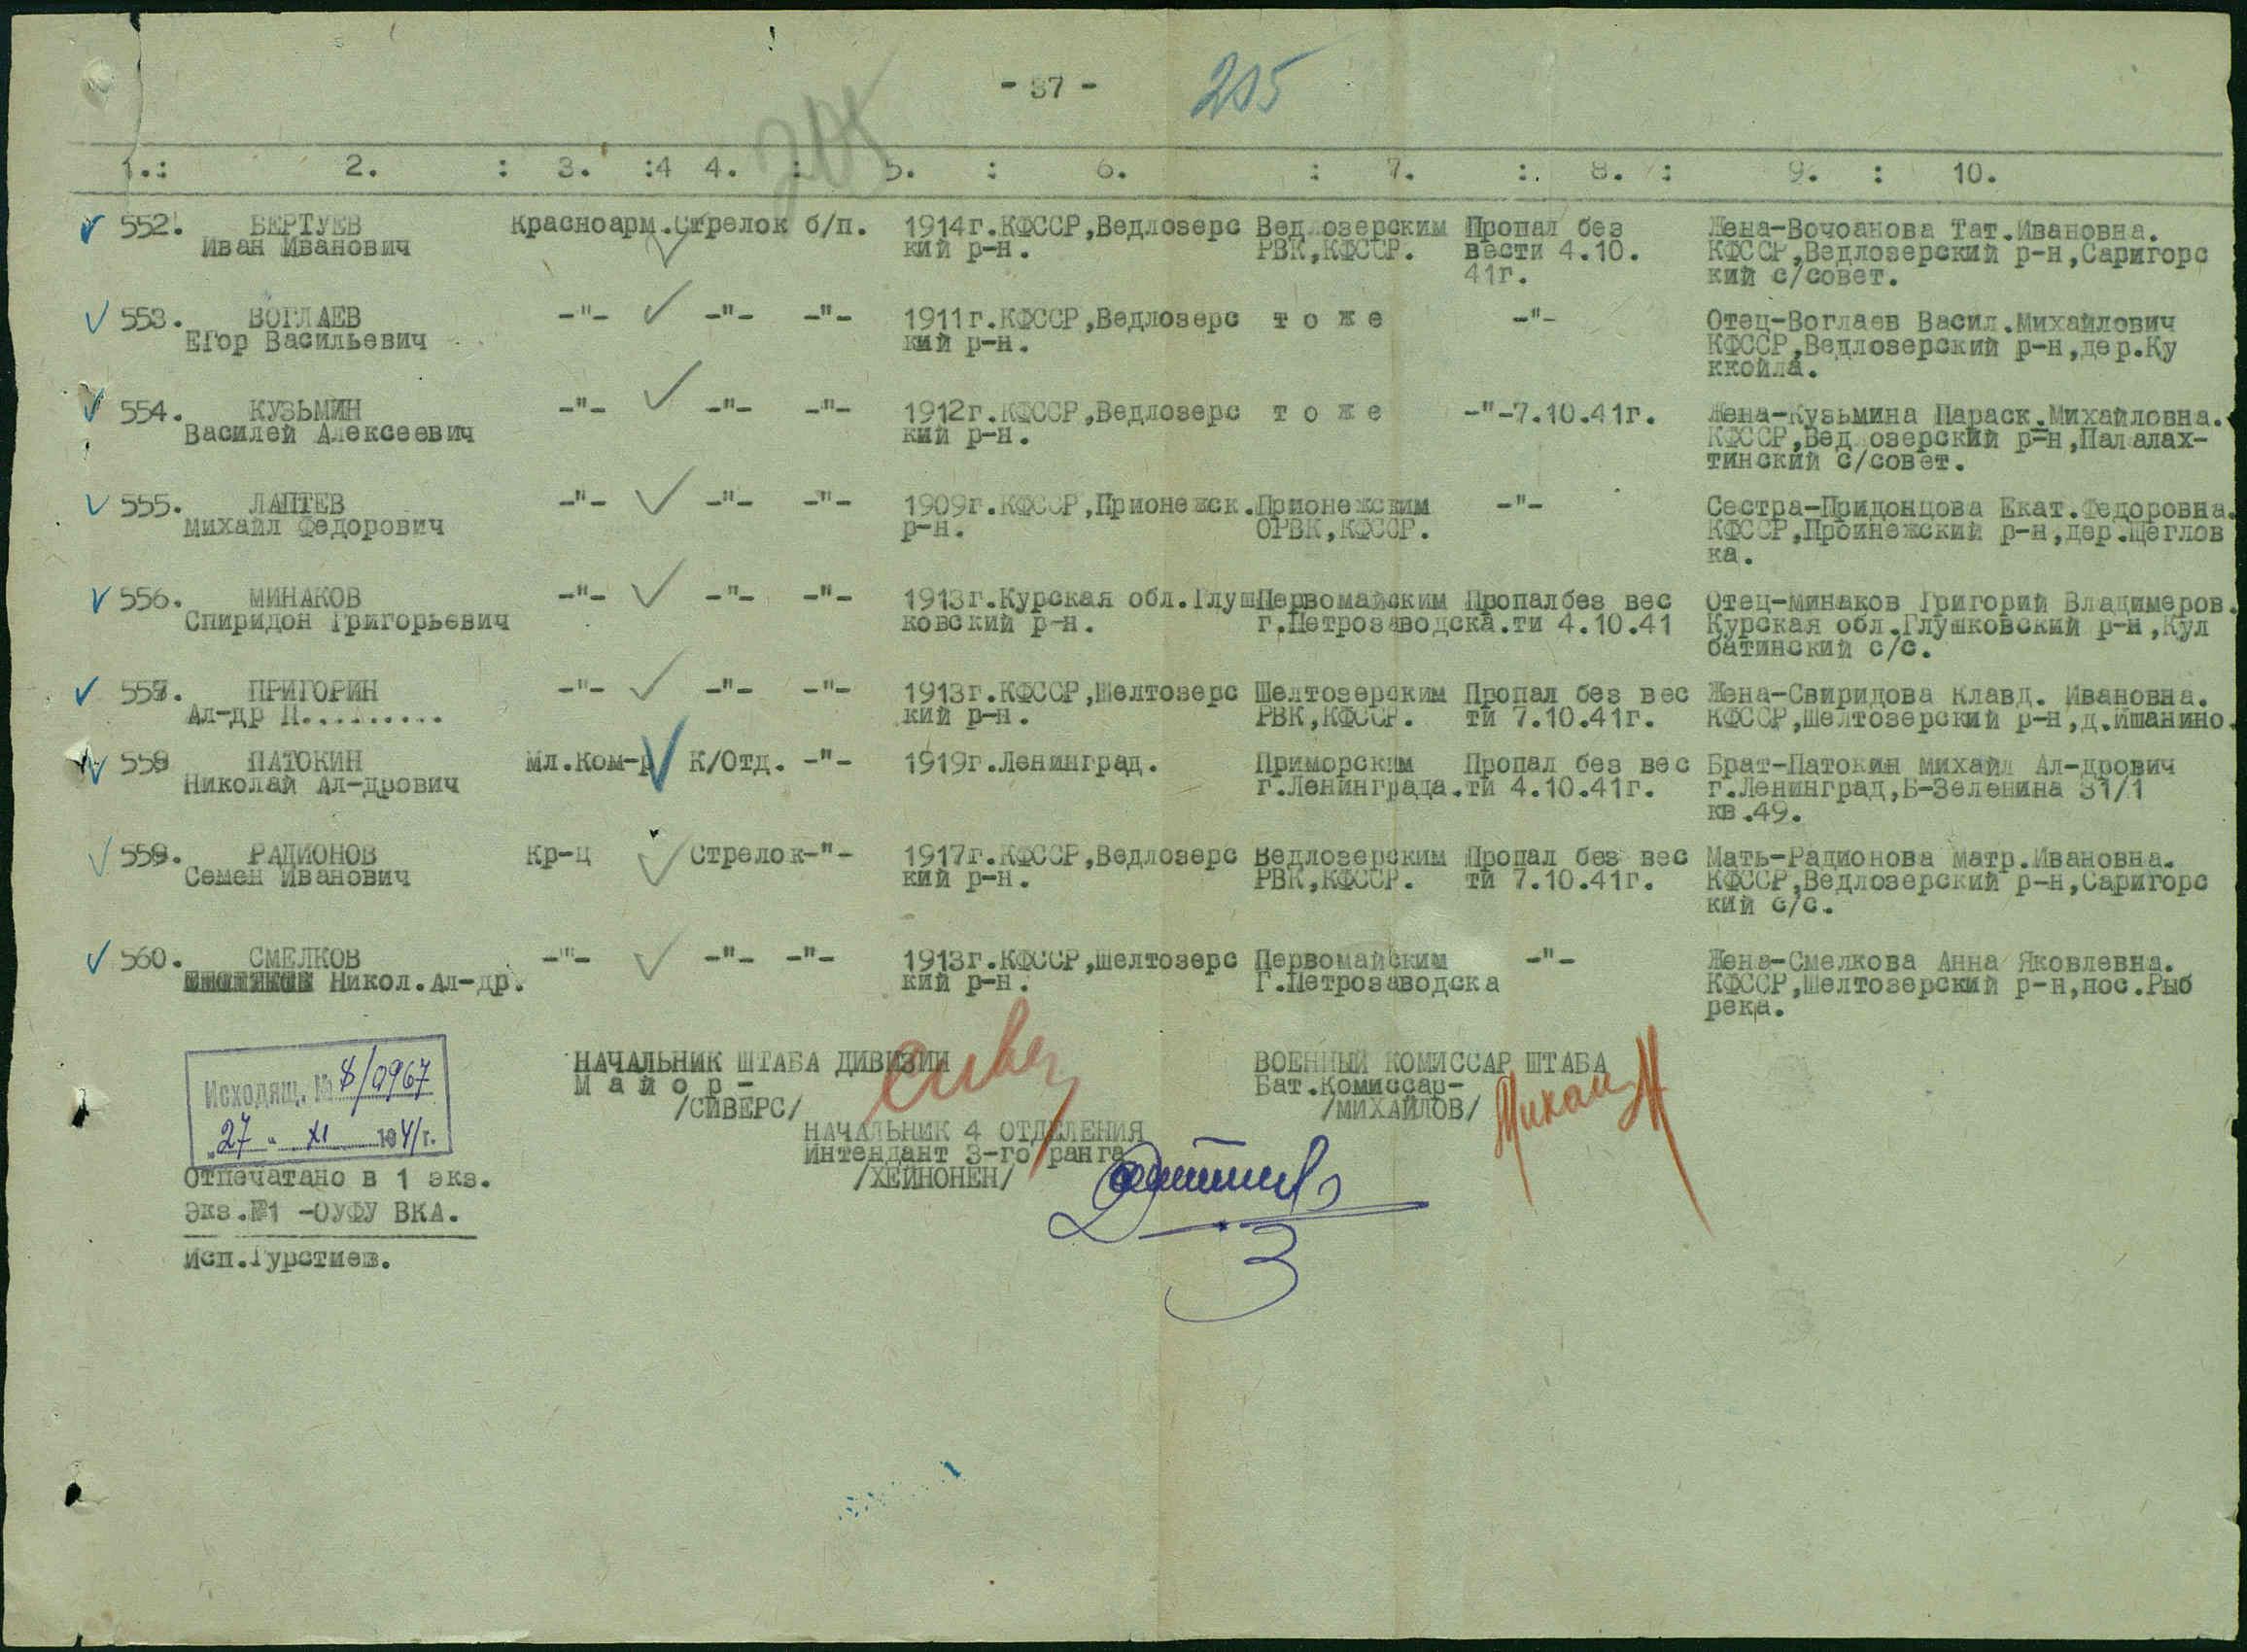 - 37 -
205
205
1.: 2. : 3. :4 4. : 5. : 6. : 7. :. 8. : 9. : 10.
552. ВЕРТУЕВ Красноарм. Стрелок б/п. 1914г.КФССР,Ведлозерс Ведлозерским Пропал без Жена-Вочоанова Тат.Ивановна.
Иван Иванович кий р-н. РВК,КФССР. вести 4.10. КФССР,Ведлозерский р-н,Саригорс
41г. кий с/совет.
553. ВОГЛАЕВ -"- -"- -"- 1911г.КФССР,Ведлозерс т о ж е -"- Отец-Воглаев Васил.Михайлович
Егор Васильевич кий р-н. КФССР,Ведлозерский р-н,дер.Ку
ккойла.
554. КУЗЬМИН -"- -"- -"- 1912г.КФССР,Ведлозерс т о ж е -"-7.10.41г. Жена-Кузьмина Параск.Михайловна.
Василей Алексеевич кий р-н. КФССР,Вед озерский р-н,Палалах-
тинский с/совет.
555. ЛАПТЕВ -"- -"- -"- 1909г.КФССР,Прионежск. Прионежским -"- Сестра-Придонцова Екат.Федоровна.
Михайл Федорович р-н. ОРВК,КФССР. КФССР,Проинежский р-н,дер.Щеглов
ка.
556. МИНАКОВ -"- -"- -"- 1913г.Курская обл.Глуш Первомайским Пропалбез вес Отец-минаков Григорий Владимеров.
Спиридон Григорьевич ковский р-н. г.Петрозаводска. ти 4.10.41 Курская обл.Глушковский р-н,Кул
батинский с/с.
557. ПРИГОРИН -"- -"- -"- 1913г.КФССР,Шелтозерс Шелтозерским Пропал без вес Жена-Свиридова Клавд. Ивановна.
Ал-др П......... кий р-н. РВК,КФССР. ти 7.10.41г. КФССР,Шелтозерский р-н,д.Ишанино.
558 ПАТОКИН Мл.Ком-р К/Отд. -"- 1919г.Ленинград. Приморским Пропал без вес Брат-Патокин михайл Ал-дрович
Николай Ал-дрович г.Ленинграда. ти 4.10.41г. г.Ленинград,Б-Зеленина 31/1
кв.49.
559. РАДИОНОВ Кр-ц Стрелок -"- 1917г.КФССР,Ведлозерс Ведлозерским Пропал без вес Мать-Радионова матр.Ивановна.
Семен Иванович кий р-н. РВК,КФССР. ти 7.10.41г. КФССР,Ведлозерский р-н,Саригорс
кий с/с.
560. СМЕЛКОВ -"- -"- -"- 1913г.КФССР,шелтозерс Первомайским -"- Жена-Смелкова Анна Яковлевна.
Никол.Ал-др. кий р-н. Г.Петрозаводска КФССР,Шелтозерский р-н,пос.Рыб
река.
НАЧАЛЬНИК ШТАБА ДИВИЗИИ
М а й о р -
/СИВЕРС/
Сивер
ВОЕННЫЙ КОМИССАР ШТАБА
Бат.Комиссар-
/МИХАЙЛОВ/
Михай
НАЧАЛЬНИК 4 ОТДЕЛЕНИЯ
Интендант 3-го ранга
/ХЕЙНОНЕН/
Исходящ. № 8/0967
"27" XI 1941г.
Отпечатано в 1 экз.
Экз.№1 -ОУФУ ВКА.
Исп.Гурстиев.